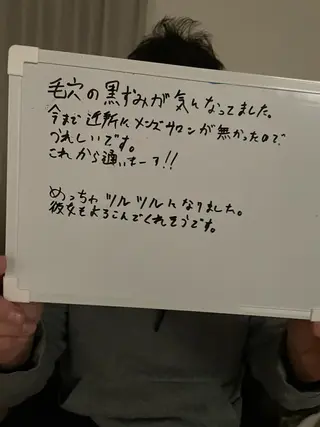 毛穴の黒ずみが気になってました。
今まで近所にメンズサロンが無かったので
うれしいです。
これから通いまーす!!
めっちゃツルツルになりました。
彼女もよろこんでくれそうです。